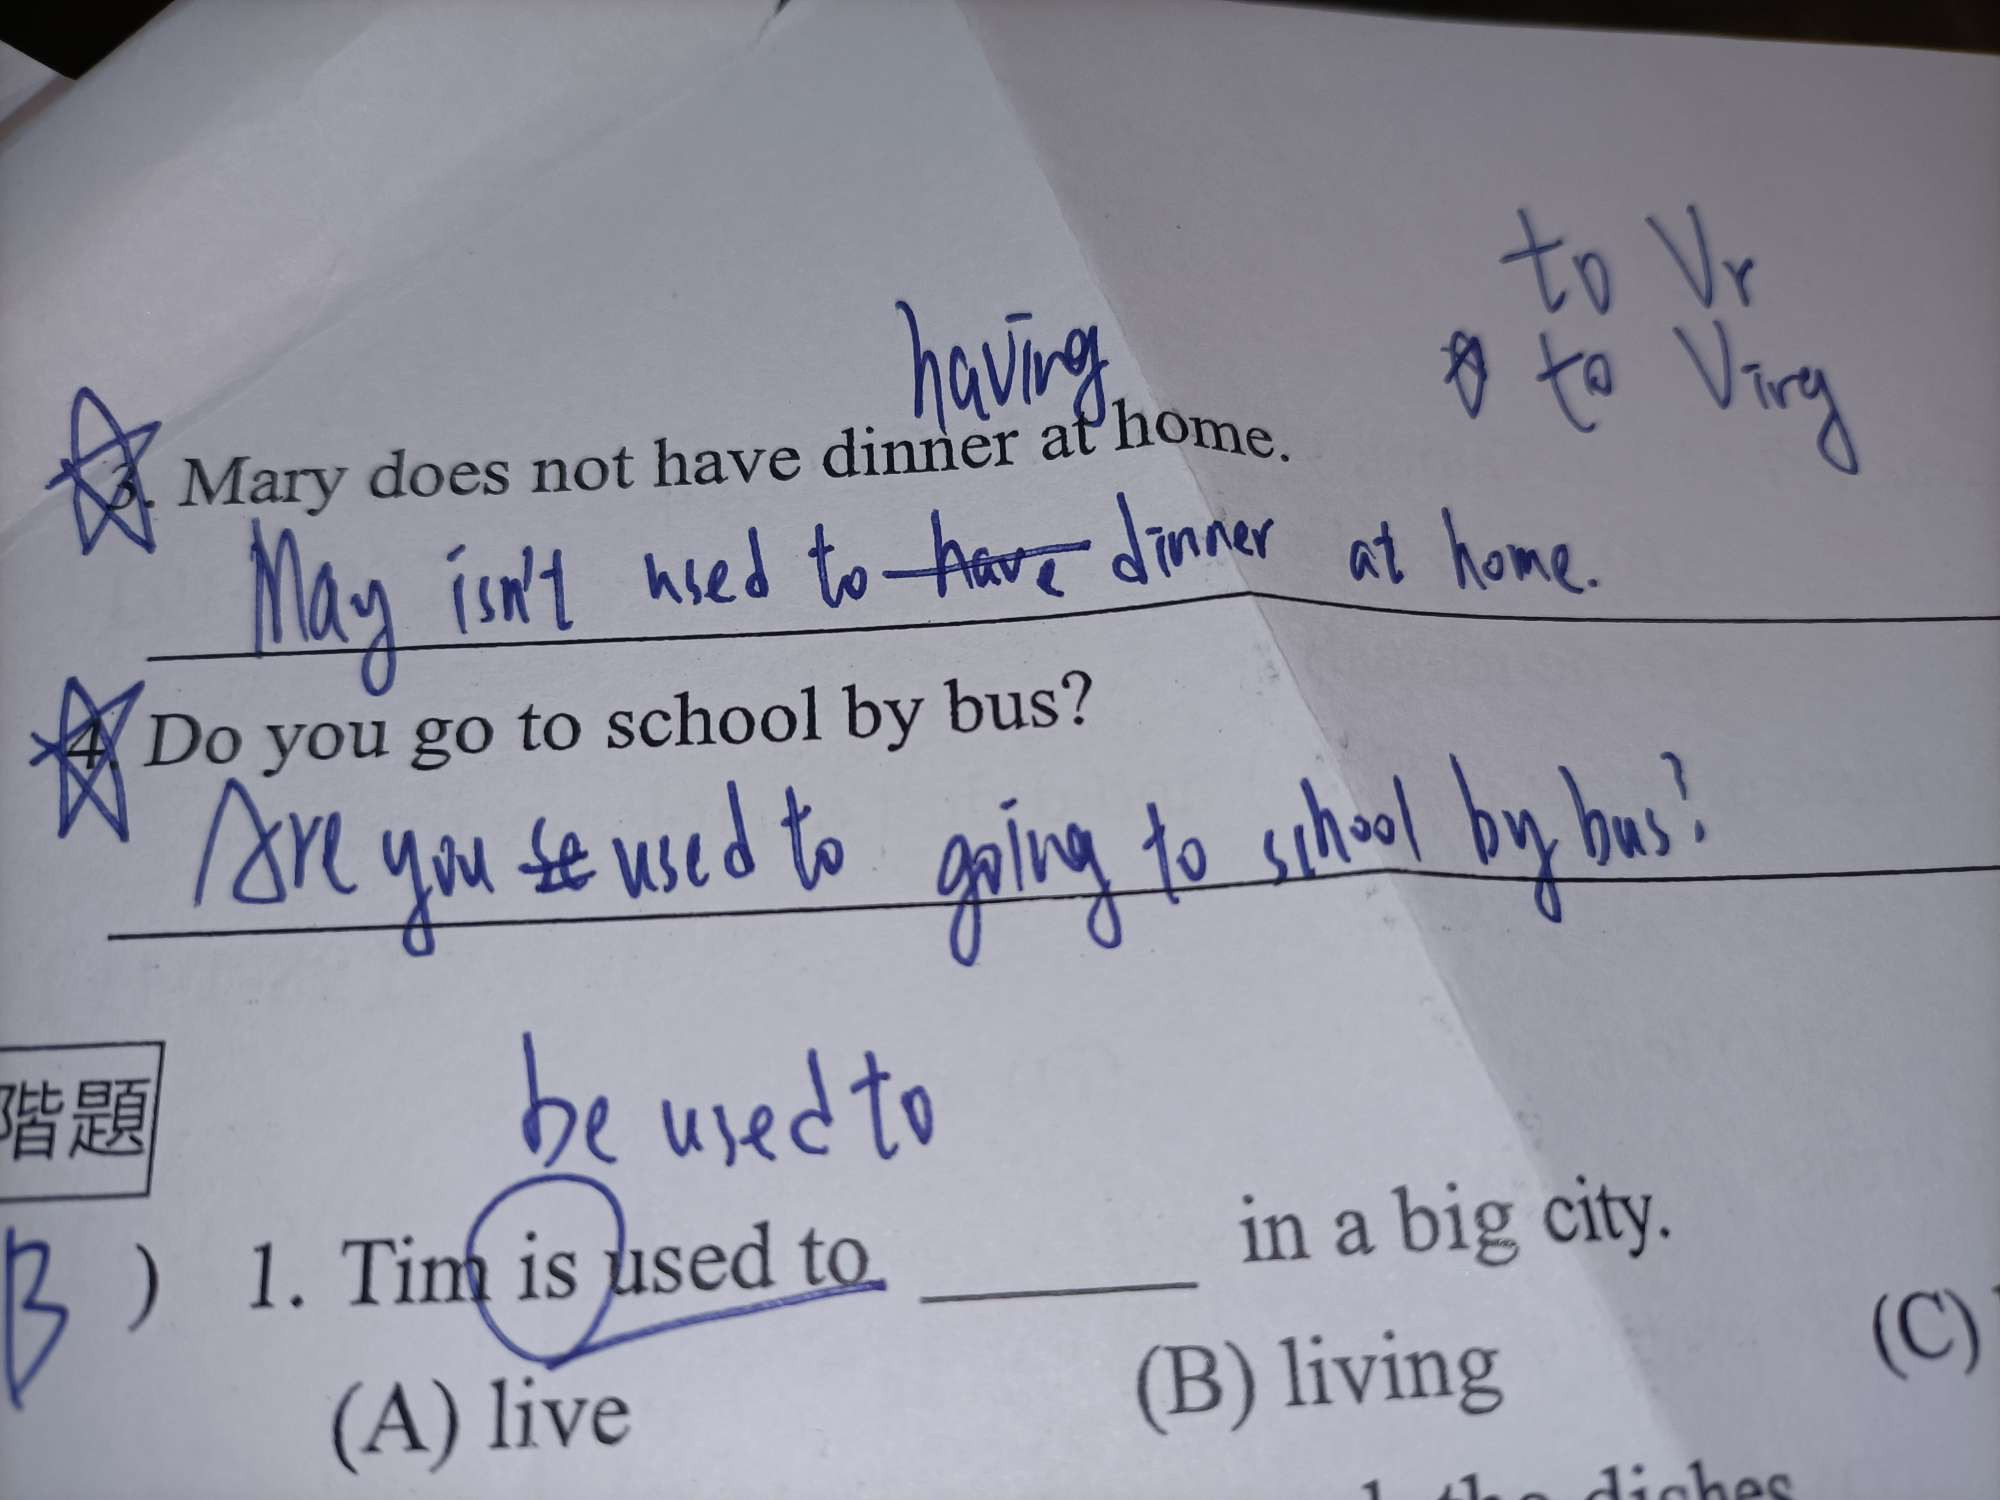 to Vr
to Ving
having
3. Mary does not have dinner at home.
May isn't used to have dinner at home.
4. Do you go to school by bus?
Are you used to going to school by bus?
階題
be used to
B ) 1. Tim is used to ______ in a big city.
(A) live (B) living (C)
the dishes